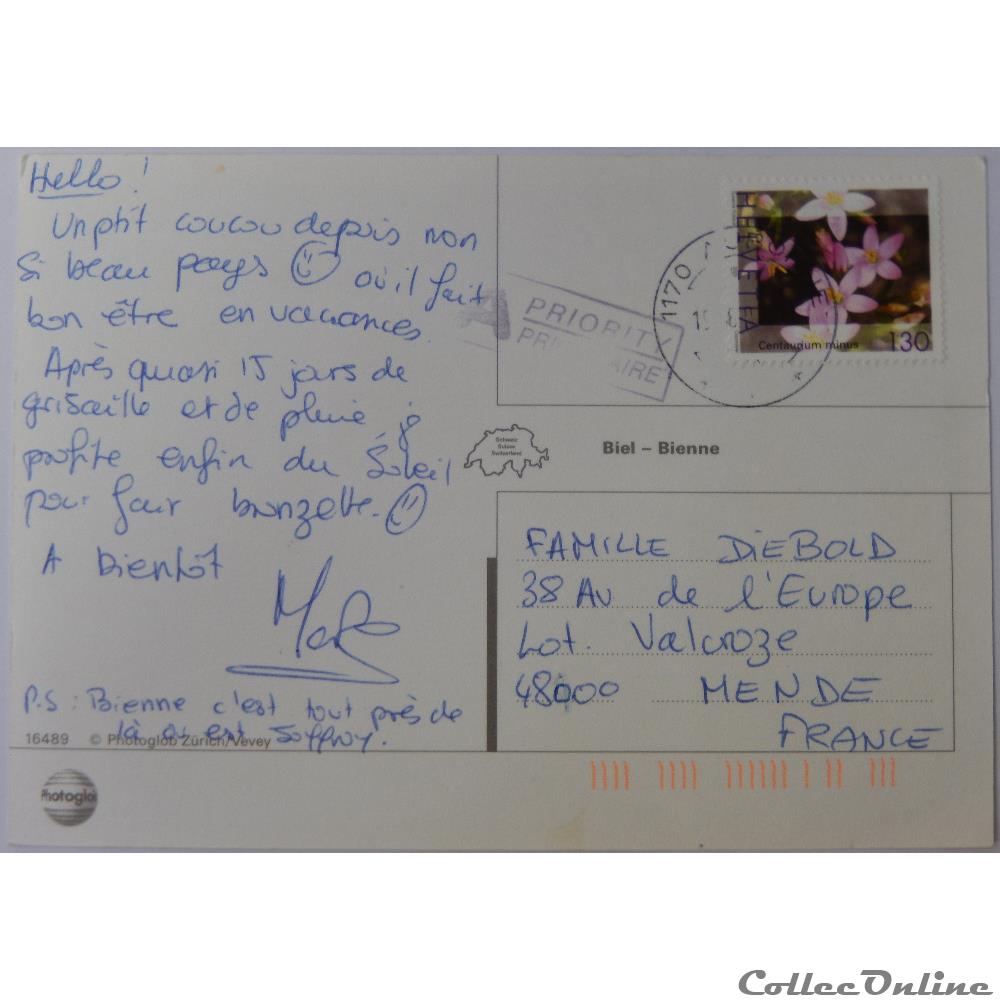 Hello!
Un ptit coucou depuis mon
si beau pays où il fait
bon être en vacances.
Après quasi 15 jours de
grisaille et de pluie, je
profite enfin du Soleil
pour fair bronzette.
A bientôt
P.S : Bienne c'est tout près de
là où est
16489 © Photoglob Zürich/Vevey
Photoglob
PRIORITY
1170
HELVETIA
Centaurium minus 130
Schweiz
Suisse
Switzerland
Biel – Bienne
FAMILLE DIEBOLD
38 Av de l'Europe
Lot. Valcroze
48000 MENDE
FRANCE
CollecOnline